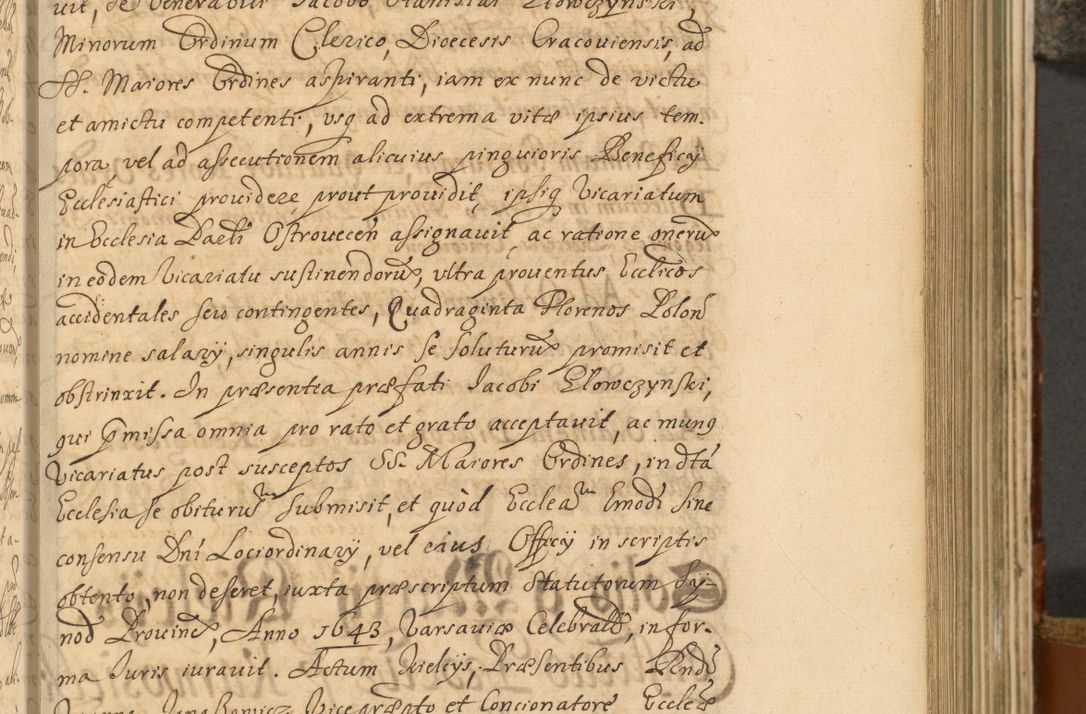 uit, de Venerabili Jacobo Stanislai Elowczynski,
Minorum Ordinum Clerico, Dioecesis Cracouiensis, ad
SS. Maiores Ordines aspiranti, iam ex nunc de victu
et amictu competenti, vsq ad extrema vitæ ipsius tem-
pora, vel ad assecutionem alicuius pinguioris Beneficÿ
Ecclesiastici prouidere, prout prouidit, ipsiq Vicariatum
in Ecclesia Paeli Ostrouecen assignauit, ac ratione oneru
in eodem Vicariatu sustinendoru, vltra prouentus Ecclicos
accidentales seu contingentes, Quadraginta Florenos Polon
nomine salarÿ, singulis annis se soluturu promisit et
obstrinxit. In præsentia præfati Jacobi Elowczynski,
qui pmissa omnia pro rato et grato acceptauit, ac munq
Vicariatus post susceptos SS. Maiores Ordines, in dta
Ecclesia se obituru submisit, et quòd Ecclea Emodi sine
consensu Dni Lociordinarÿ, vel eius Officÿ in scriptis
obtento, non deseret, iuxta præscriptum Statutorum Sy-
nod Prouinc, Anno 1643, Varsauiæ Celebrat, in for-
ma Juris iurauit. Actum Kielcÿs, Præsentibus Rndi
Vicepræpto et Concionatore Eccleæ